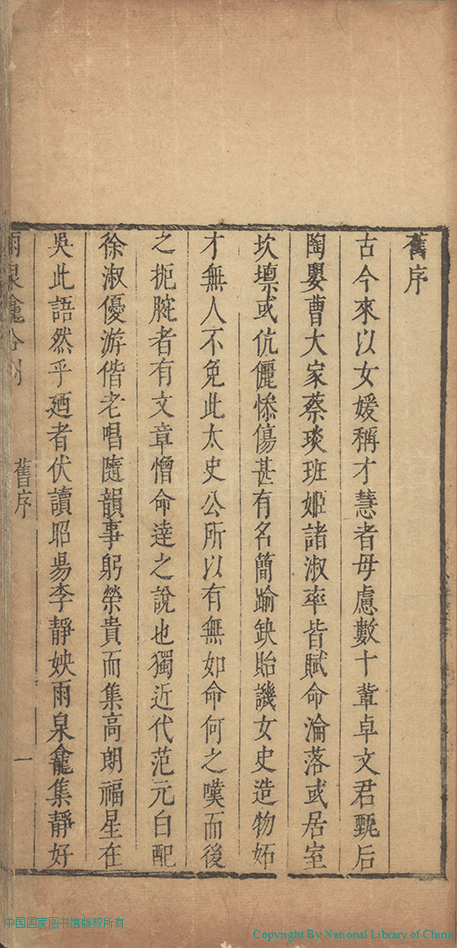 舊序
古今來以女媛稱才慧者毋慮數十輩卓文君甄后
陶嬰曹大家蔡琰班姬諸淑率皆賦命淪落或居室
坎壈或伉儷慘傷甚有名簡踰缺貽譏女史造物妬
才無人不免此太史公所以有無如命何之嘆而後
之扼腕者有文章憎命達之說也獨近代范元白配
徐淑優游偕老唱隨韻事躬榮貴而集高朗福星在
吳此語然乎廼者伏讀昭陽李靜姎雨泉龕集靜好
雨泉龕合刻
舊序
一
中国国家图书馆版权所有
Copyright By National Library of China